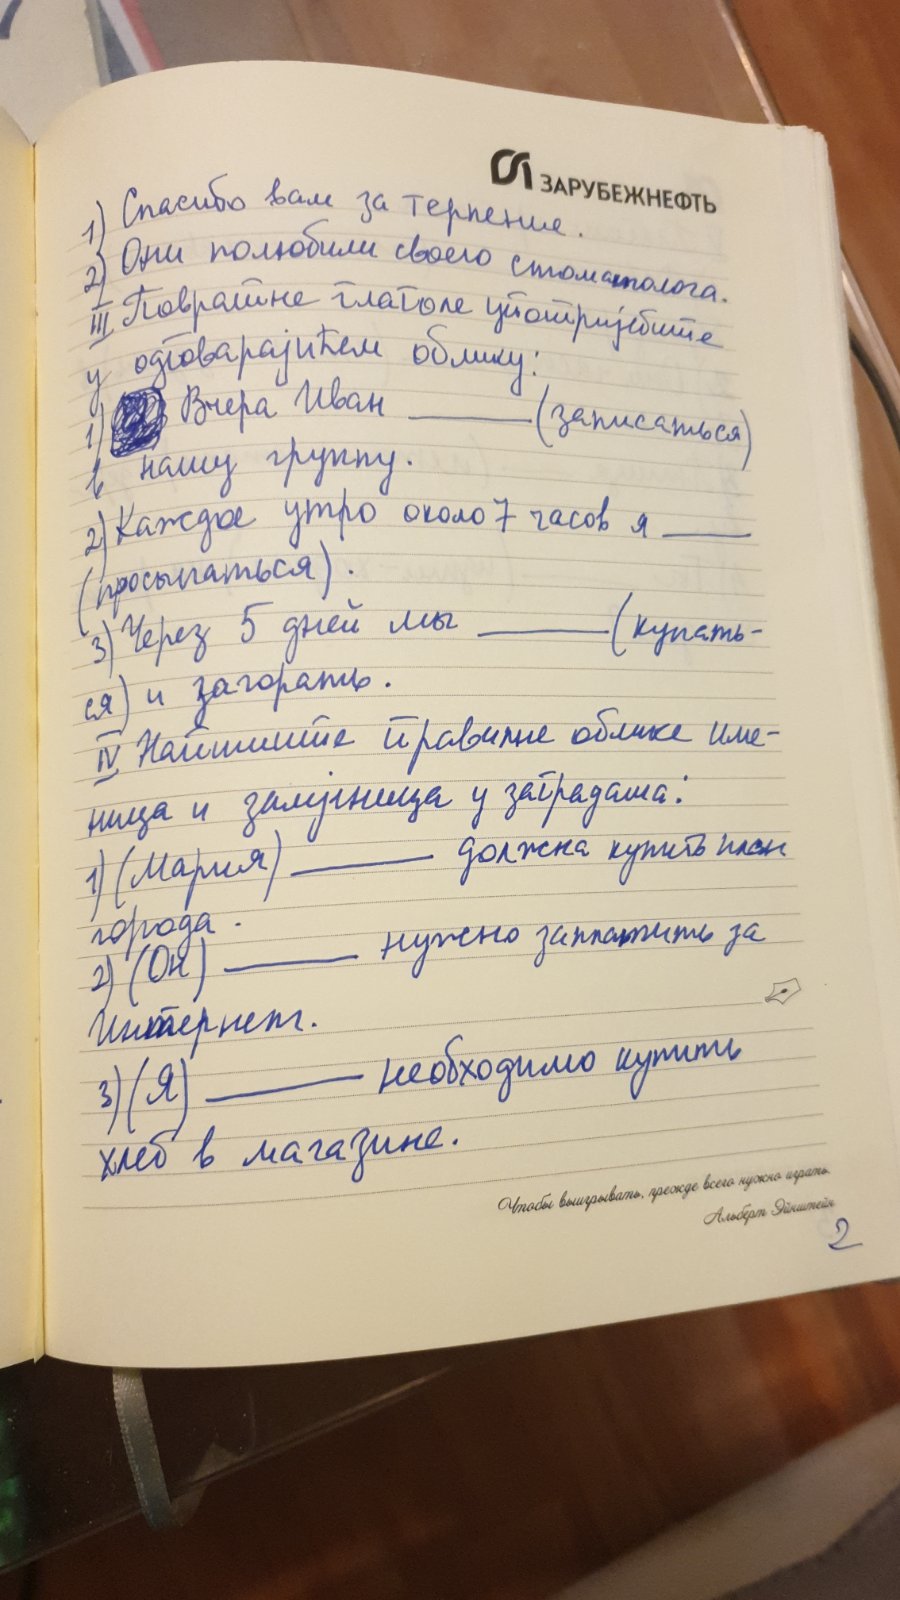 ЗАРУБЕЖНЕФТЬ
1) Спасибо вам за терпение.
2) Они полюбили своего стоматолога.
III Повратне глаголе употријебите
у одговарајућем облику:
1) Вчера Иван ______ (записаться)
в нашу группу.
2) Каждое утро около 7 часов я ____
(просыпаться).
3) Через 5 дней мы ______ (купать-
ся) и загорать.
IV Напишите правилне облике име-
ница и замјеница у заградама:
1) (Мария) ______ должна купить план
города.
2) (Он) ______ нужно заплатить за
Интернет.
3) (Я) ______ необходимо купить
хлеб в магазине.
Чтобы выигрывать, прежде всего нужно играть.
Альберт Эйнштейн
2